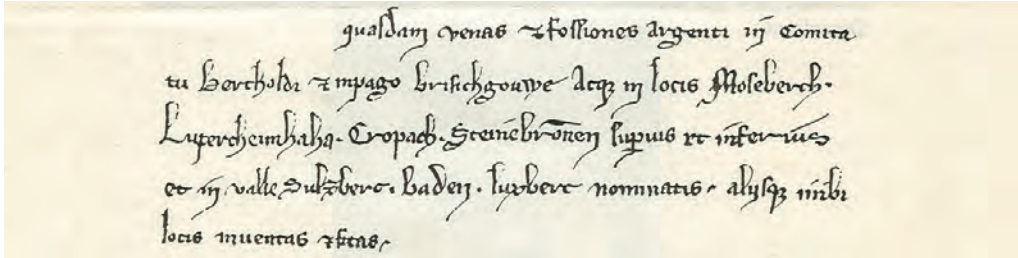 quasdam venas et fossiones argenti in Comita
tu Bertholdi et in pago brisichgouwe Atq; in locis Moseberch.
Lupercheimhaha. Cropach. Steinebronnen superius et inferius
et in valle Sulzberc. baden. luxberc nominatis. alijsq; inibi
locis inventas et factas.